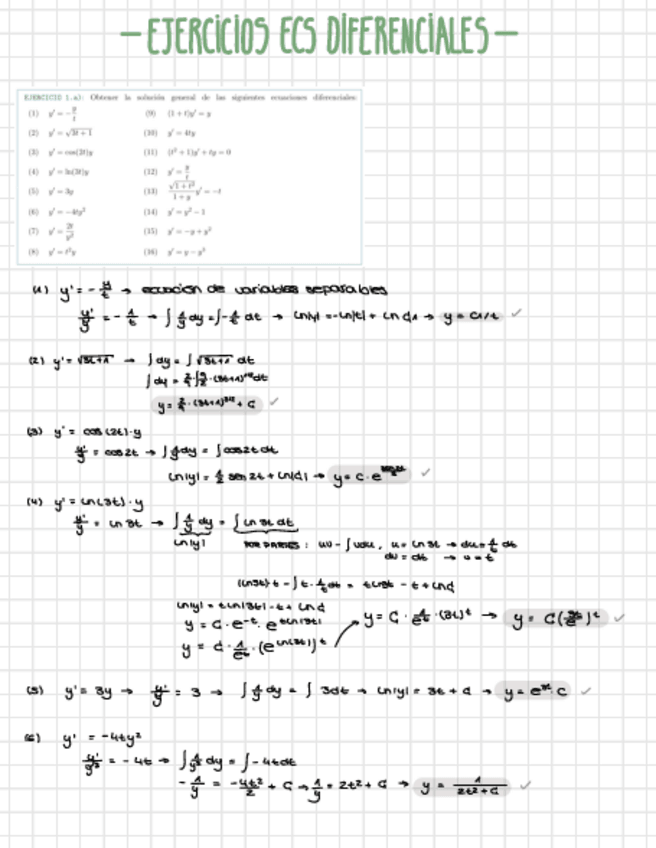 -EJERCICIOS ECS DIFERENCIALES-
EJERCICIO 1.a): Obtener la solución general de las siguientes ecuaciones diferenciales:
(1) y' = -y/t (9) (1+t)y' = y
(2) y' = √(3t+1) (10) y' = 4ty
(3) y' = cos(2t)y (11) (t²+1)y' + ty = 0
(4) y' = ln(3t)y (12) y' = y/t
(5) y' = 3y (13) √(1+t²)/(1+y) y' = -t
(6) y' = -4ty² (14) y' = y² - 1
(7) y' = 2t/y² (15) y' = -y + y²
(8) y' = t²y (16) y' = y - y²
(1) y' = -y/t → ecuación de variables separables
y'/y = -1/t → ∫ 1/y dy = ∫ -1/t dt → ln|y| = -ln|t| + ln C1 → y = C1/t ✓
(2) y' = √(3t+1) → ∫ dy = ∫ √(3t+1) dt
∫ dy =
y = ·(3t+1)^(3/2) + C ✓
(3) y' = cos(2t)·y
y'/y = cos2t → ∫ 1/y dy = ∫ cos2t dt
ln|y| = 1/2 sen 2t + ln|d| → y = C·e ✓
(4) y' = ln(3t)·y
y'/y = ln 3t → ∫ 1/y dy = ∫ ln 3t dt
ln|y| POR PARTES: uv - ∫vdu, u = ln 3t → du = 1/t dt
dv = dt → v = t
(ln3t)t - ∫ t · 1/t dt = t ln3t - t + ln d
ln|y| = t ln|3t| - t + ln d
y = C · e^-t · e^(t ln|3t|)
y = d · 1/e^t · (e^(ln(3t)))^t y = C · 1/e^t · (3t)^t → y = C(3t/e)^t ✓
(5) y' = 3y → y'/y = 3 → ∫ 1/y dy = ∫ 3dt → ln|y| = 3t + d → y = e^3t C ✓
(6) y' = -4ty²
y'/y² = -4t → ∫ 1/y² dy = ∫ -4t dt
-1/y = -4t²/2 + C → 1/y = 2t² + C → y = 1/(2t²+C) ✓